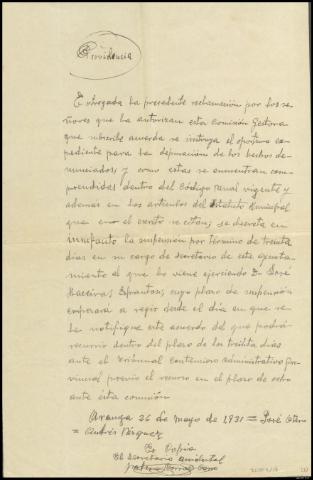 Providencia
Entregada la precedente reclamación por los se-
ñores que la autorizan esta Comisión Gestora
que subscribe acuerda se instruya el oportuno ex-
pediente para la depuración de los hechos de-
nunciados, y como estos se encuentran com-
prendidos dentro del Código penal vigente y
ademas en los artículos del Estatuto Municipal
que en el escrito se citan, se decreta en
la suspensión por término de treinta
dias en su cargo de secretario de este ayunta-
miento al que lo viene ejerciendo D. José
cuyo plazo de suspensión
empezara a regir desde el día en que se
le notifique este acuerdo del que podrá
recurrir dentro del plazo de los treinta dias
ante el Tribunal Contencioso administrativo pro-
vincial previo el recurso en el plazo de ocho
ante esta comisión
Aranga 26 de mayo de 1931 = José Otero
= Andrés Vázquez
Es Copia
El Secretario accidental